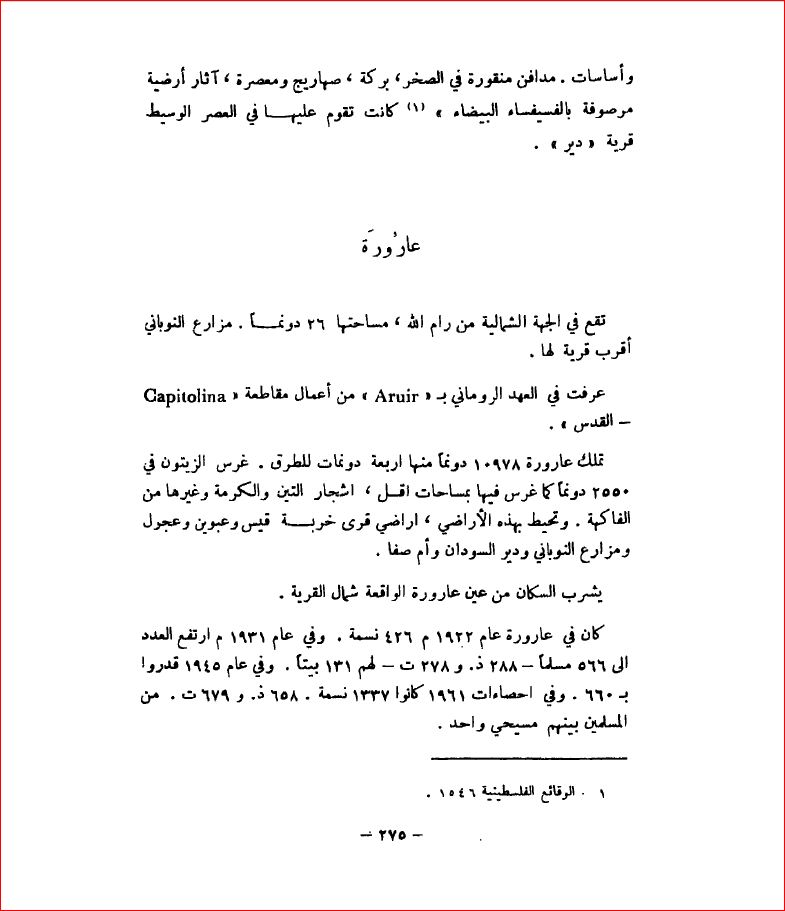 وأساسات . مدافن منقورة في الصخر ، بركة ، صهاريج ومعصرة ، آثار أرضية
مرصوفة بالفسيفساء البيضاء » (١) كانت تقوم عليهـا في العصر الوسيط
قرية « دير » .
عارُورَة
تقع في الجهة الشمالية من رام الله ، مساحتها ٢٦ دونمـاً . مزارع النوباني
أقرب قرية لها .
عرفت في العهد الروماني بـ « Aruir » من أعمال مقاطعة « Capitolina
– القدس » .
تملك عارورة ١٠٩٧٨ دونماً منها اربعة دونمات للطرق . غرس الزيتون في
٢٥٥٠ دونماً كما غرس فيها بمساحات اقـل ، اشجار التين والكرمة وغيرها من
الفاكهة . وتحيط بهذه الأراضي ، اراضي قرى خربـة قيس وعبوين وعجول
ومزارع النوباني ودير السودان وأم صفا .
يشرب السكان من عين عارورة الواقعة شمال القرية .
كان في عارورة عام ١٩٢٢ م ٤٢٦ نسمة . وفي عام ١٩٣١ م ارتفع العدد
الى ٥٦٦ مسلماً – ٢٨٨ ذ. و ٢٧٨ ت – لهم ١٣١ بيتاً . وفي عام ١٩٤٥ قدروا
بـ ٦٦٠ . وفي احصاءات ١٩٦١ كانوا ١٣٣٧ نسمة . ٦٥٨ ذ. و ٦٧٩ ت . من
المسلمين بينهم مسيحي واحد .
١ . الوقائع الفلسطينية ١٥٤٦ .
– ٢٧٥ –